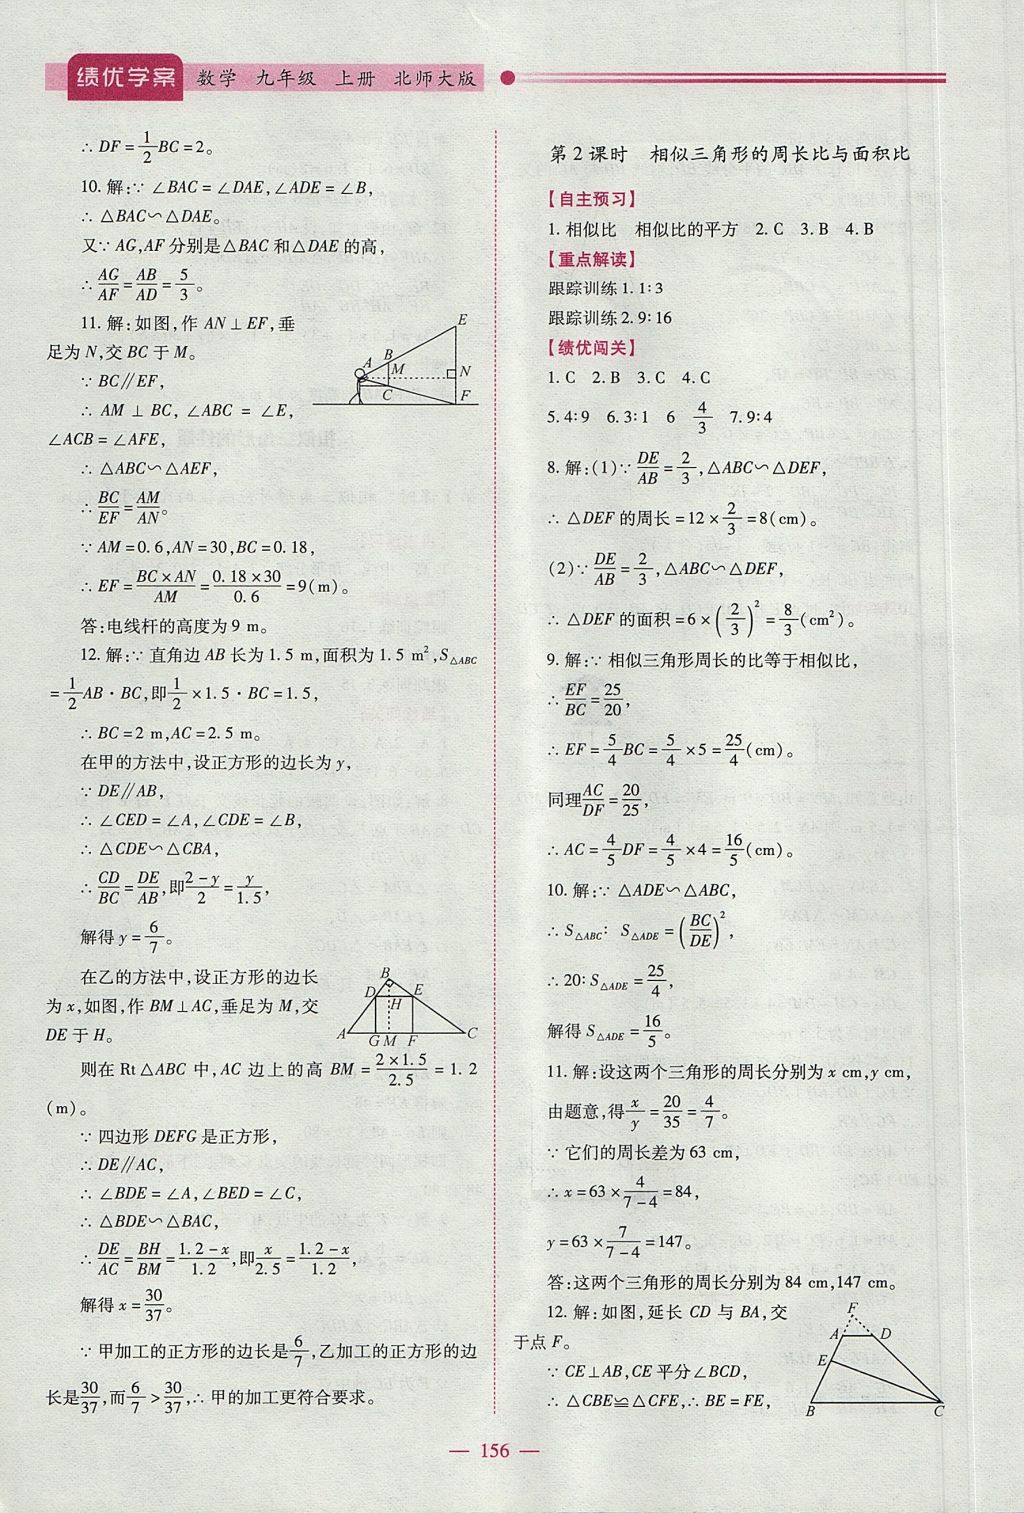 绩优学案 数学 九年级 上册 北师大版
∴ DF=1/2BC=2。
10. 解:∵ ∠BAC=∠DAE,∠ADE=∠B,
∴ △BAC∽△DAE。
又∵ AG,AF 分别是△BAC 和△DAE 的高,
∴ AG/AF=AB/AD=5/3。
11. 解:如图,作 AN⊥EF,垂
足为 N,交 BC 于 M。
∵ BC∥EF,
∴ AM⊥BC,∠ABC=∠E,
∠ACB=∠AFE,
∴ △ABC∽△AEF,
∴ BC/EF=AM/AN。
∵ AM=0.6,AN=30,BC=0.18,
∴ EF=BC×AN/AM=0.18×30/0.6=9(m)。
答:电线杆的高度为 9 m。
E
A
B
M
N
C
F
12. 解:∵ 直角边 AB 长为 1.5 m,面积为 1.5 m²,S△ABC
=1/2AB·BC,即1/2×1.5·BC=1.5,
∴ BC=2 m,AC=2.5 m。
在甲的方法中,设正方形的边长为 y,
∵ DE∥AB,
∴ ∠CED=∠A,∠CDE=∠B,
∴ △CDE∽△CBA,
∴ CD/BC=DE/AB,即(2-y)/2=y/1.5,
解得 y=6/7。
在乙的方法中,设正方形的边长
为 x,如图,作 BM⊥AC,垂足为 M,交
DE 于 H。
B
D
E
H
A
G M F
C
则在 Rt△ABC 中,AC 边上的高 BM=2×1.5/2.5=1.2
(m)。
∵ 四边形 DEFG 是正方形,
∴ DE∥AC,
∴ ∠BDE=∠A,∠BED=∠C,
∴ △BDE∽△BAC,
∴ DE/AC=BH/BM=(1.2-x)/1.2,即x/2.5=(1.2-x)/1.2,
解得 x=30/37。
∵ 甲加工的正方形的边长是6/7,乙加工的正方形的边
长是30/37,而6/7>30/37,∴ 甲的加工更符合要求。
第 2 课时 相似三角形的周长比与面积比
【自主预习】
1. 相似比 相似比的平方 2. C 3. B 4. B
【重点解读】
跟踪训练 1. 1∶3
跟踪训练 2. 9∶16
【绩优闯关】
1. C 2. B 3. C 4. C
5. 4∶9 6. 3∶1 6 4/3 7. 9∶4
8. 解:(1)∵ DE/AB=2/3,△ABC∽△DEF,
∴ △DEF 的周长=12×2/3=8(cm)。
(2)∵ DE/AB=2/3,△ABC∽△DEF,
∴ △DEF 的面积=6×(2/3)²=8/3(cm²)。
9. 解:∵ 相似三角形周长的比等于相似比,
∴ EF/BC=25/20,
∴ EF=5/4BC=5/4×5=25/4(cm)。
同理AC/DF=20/25,
∴ AC=4/5DF=4/5×4=16/5(cm)。
10. 解:∵ △ADE∽△ABC,
∴ S△ABC∶S△ADE=(BC/DE)²,
∴ 20∶S△ADE=25/4,
解得 S△ADE=16/5。
11. 解:设这两个三角形的周长分别为 x cm,y cm,
由题意,得x/y=20/35=4/7。
∵ 它们的周长差为 63 cm,
∴ x=63×4/(7-4)=84,
y=63×7/(7-4)=147。
答:这两个三角形的周长分别为 84 cm,147 cm。
12. 解:如图,延长 CD 与 BA,交
于点 F。
∵ CE⊥AB,CE 平分∠BCD,
∴ △CBE≌△CFE,∴ BE=FE,
F
A
D
E
B
C
— 156 —